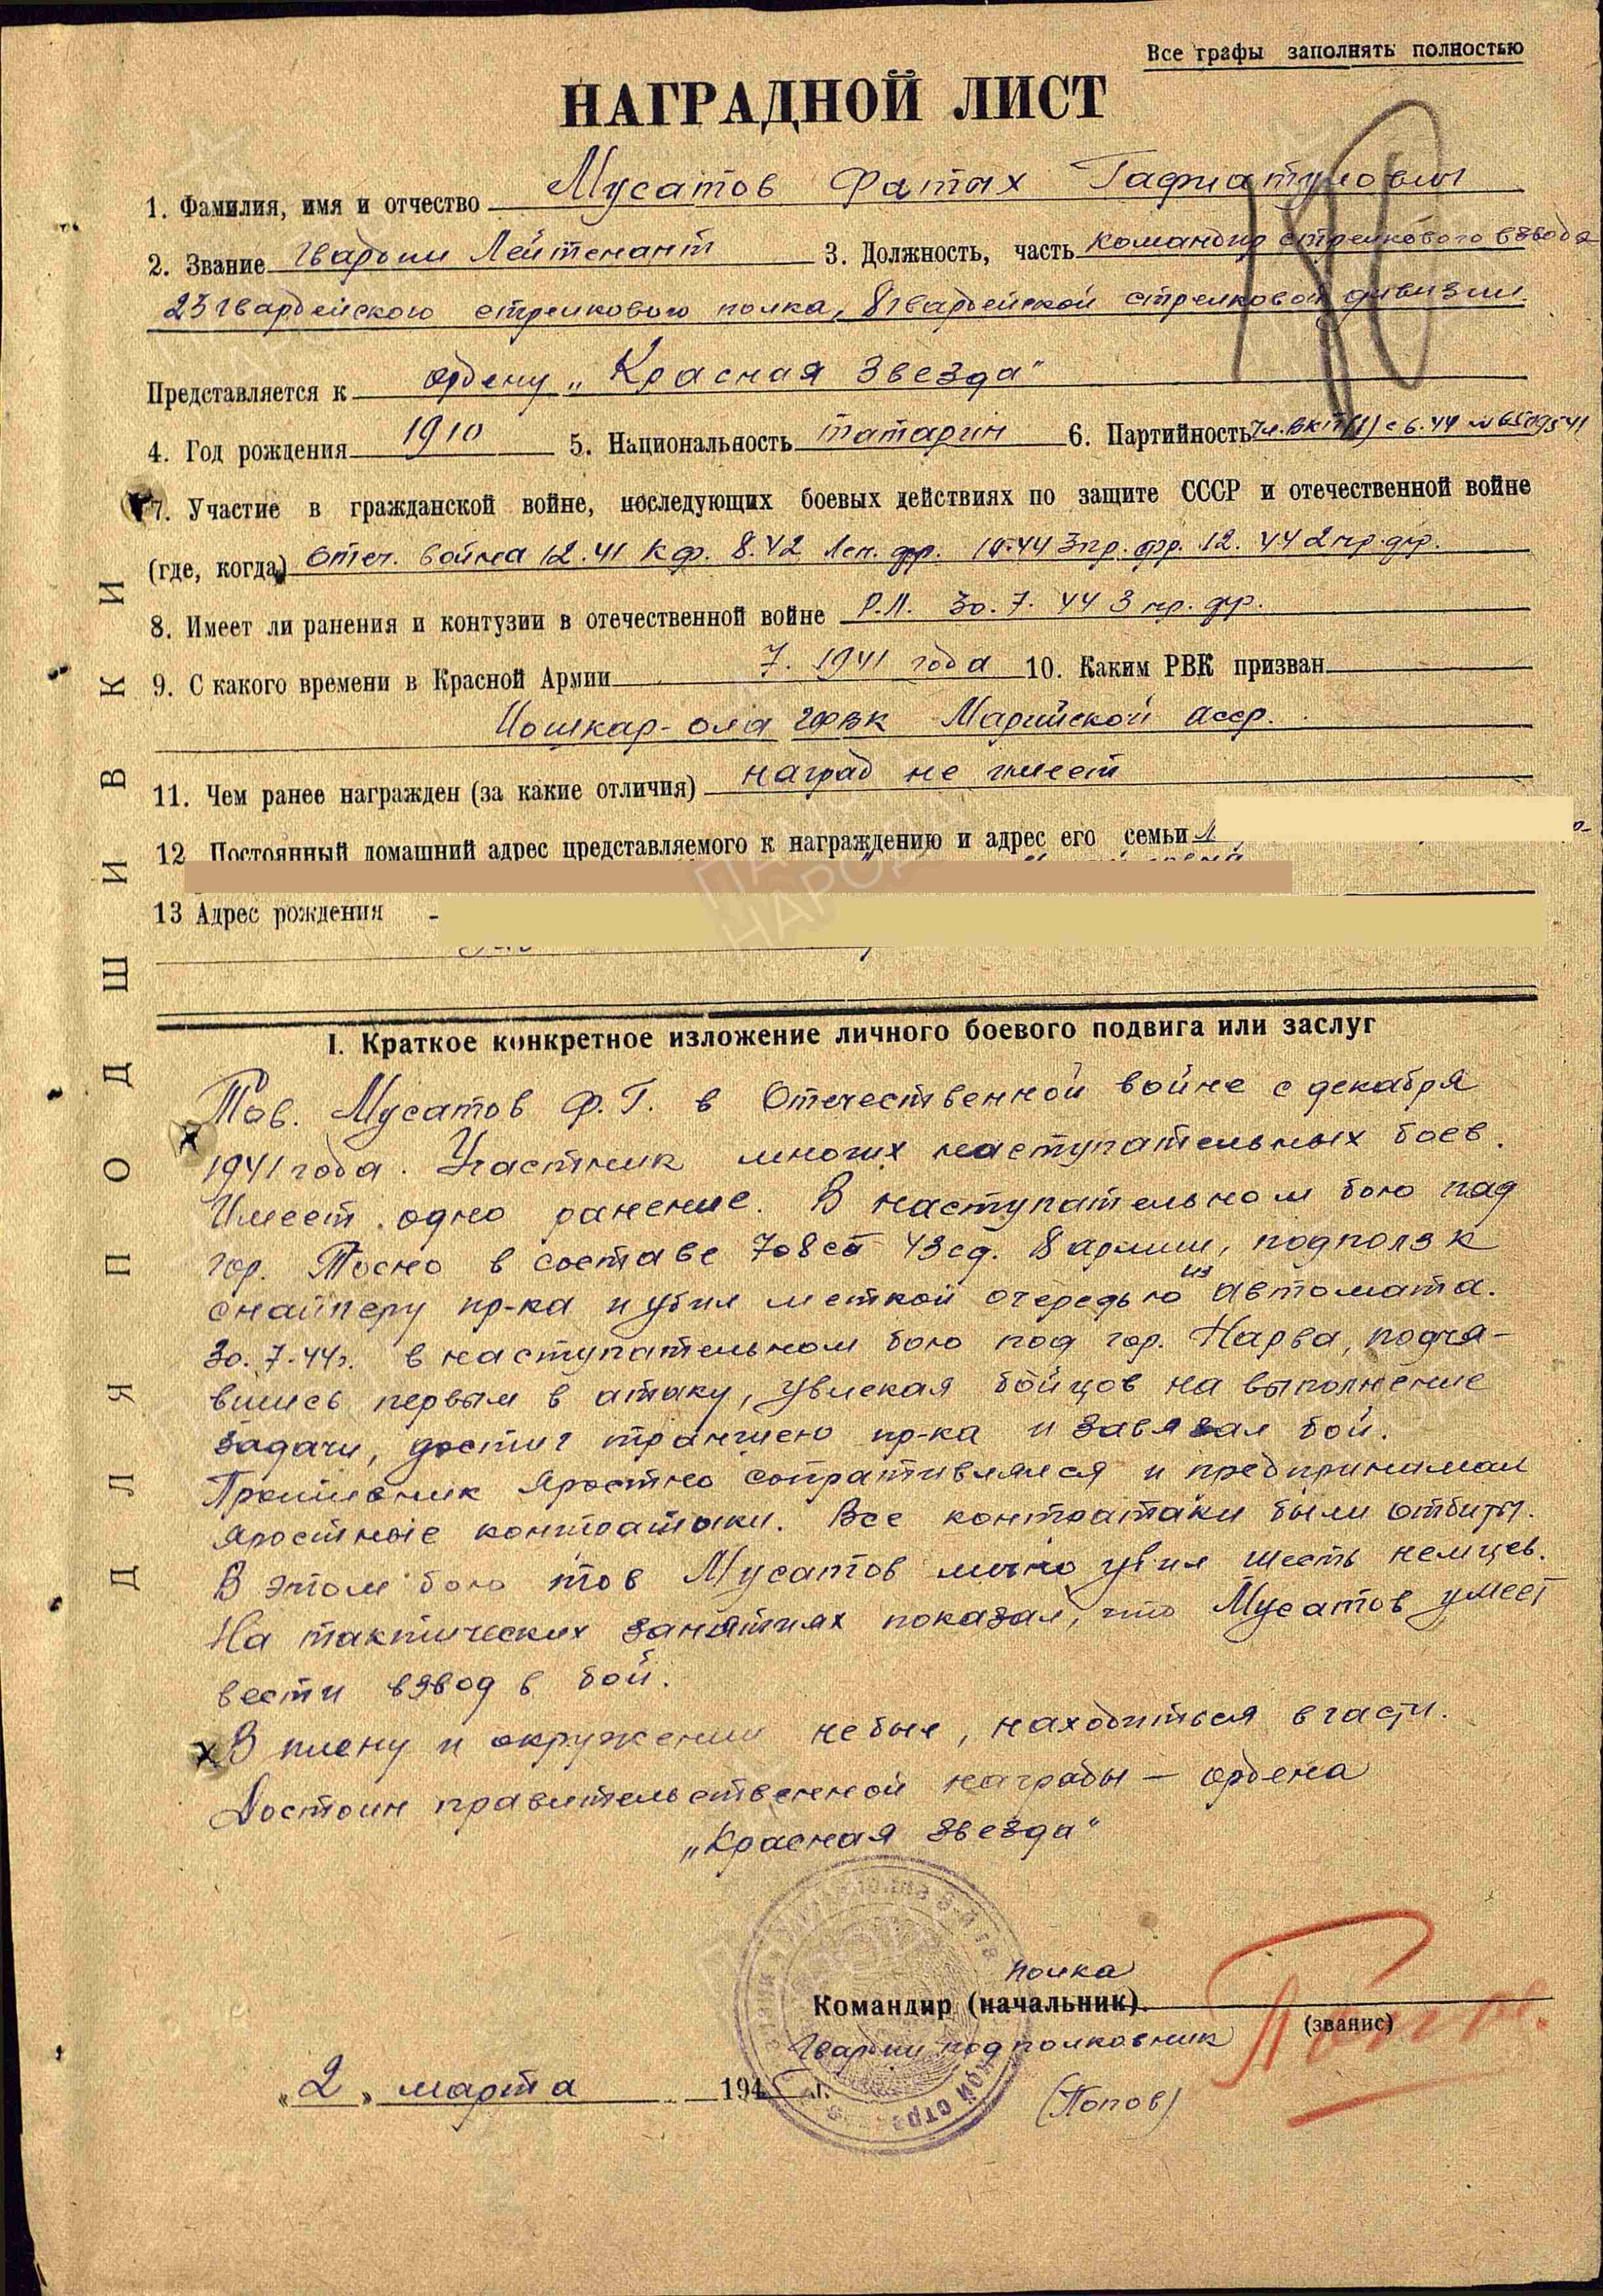 Все графы заполнять полностью
НАГРАДНОЙ ЛИСТ
1. Фамилия, имя и отчество Мусатов Фатых
2. Звание Гвардии Лейтенант 3. Должность, часть командир стрелкового взвода
23 гвардейского стрелкового полка, 8 гвардейской стрелковой дивизии.
Представляется к ордену „Красная Звезда"
4. Год рождения 1910 5. Национальность татарин 6. Партийность Чл. ВКП(б) с 6.44
7. Участие в гражданской войне, последующих боевых действиях по защите СССР и отечественной войне
(где, когда) Отеч. война 12.41 К.ф. 8.42 Лен. фр. 10.44 3 пр. фр. 12.44 2 пр. фр.
8. Имеет ли ранения и контузии в отечественной войне Р.Л. 30.7.44 3 пр. фр.
9. С какого времени в Красной Армии 7. 1941 года 10. Каким РВК призван
Йошкар-ола ГВК Марийской асср.
11. Чем ранее награжден (за какие отличия) наград не имеет
12 Постоянный домашний адрес представляемого к награждению и адрес его семьи
13 Адрес рождения -
ДЛЯ ПОДШИВКИ
I. Краткое конкретное изложение личного боевого подвига или заслуг
Тов. Мусатов Ф.Г. в Отечественной войне с декабря
1941 года. Участник многих наступательных боев.
Имеет одно ранение. В наступательном бою под
гор. Тосно в составе 708 сп 43 сд. 8 армии, подполз к
снайперу пр-ка и убил меткой очередью из автомата.
30.7.44г. в наступательном бою под гор. Нарва, подня-
вшись первым в атаку, увлекая бойцов на выполнение
задачи, достиг траншею пр-ка и завязал бой.
Противник яростно сопративлялся и предпринимал
яростные контратаки. Все контратаки были отбиты.
В этом бою тов Мусатов лично убил шесть немцев.
На тактических занятиях показал, что Мусатов умеет
вести взвод в бой.
В плену и окружении не был, находиться в части.
Достоин правительственной награды — ордена
„Красная звезда"
полка
Командир (начальник)
(звание)
Гвардии подполковник
(Попов)
„2" марта 1945 г.